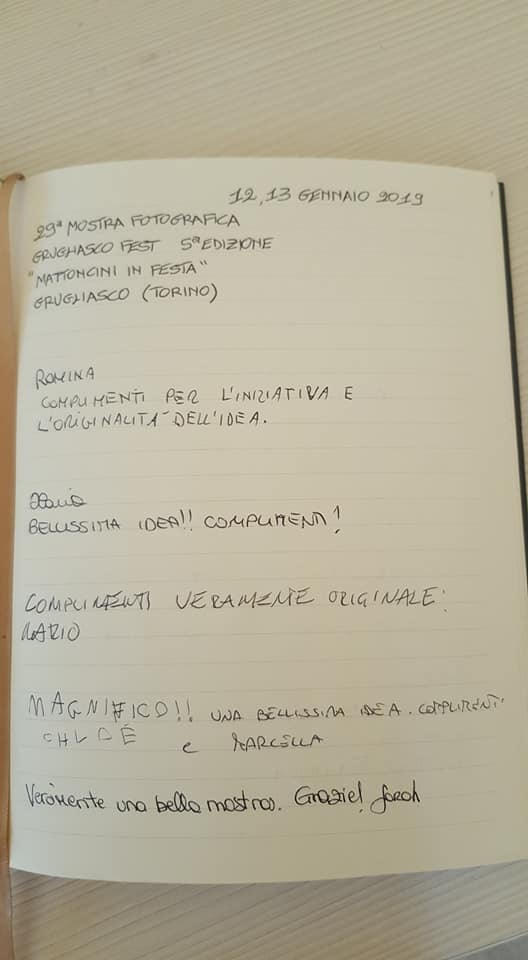 12,13 GENNAIO 2019
29ª MOSTRA FOTOGRAFICA
GRUGLIASCO FEST 5ª EDIZIONE
"MATTONCINI IN FESTA"
GRUGLIASCO (TORINO)
ROMINA
COMPLIMENTI PER L'INIZIATIVA E
L'ORIGINALITÀ DELL'IDEA.
BELLISSIMA IDEA!! COMPLIMENTI!
COMPLIMENTI VERAMENTE ORIGINALE!
MARIO
MAGNIFICO!! UNA BELLISSIMA IDEA. COMPLIMENTI
CHLOÈ e MARCELLA
Veramente una bella mostra. Grazie! Sarah